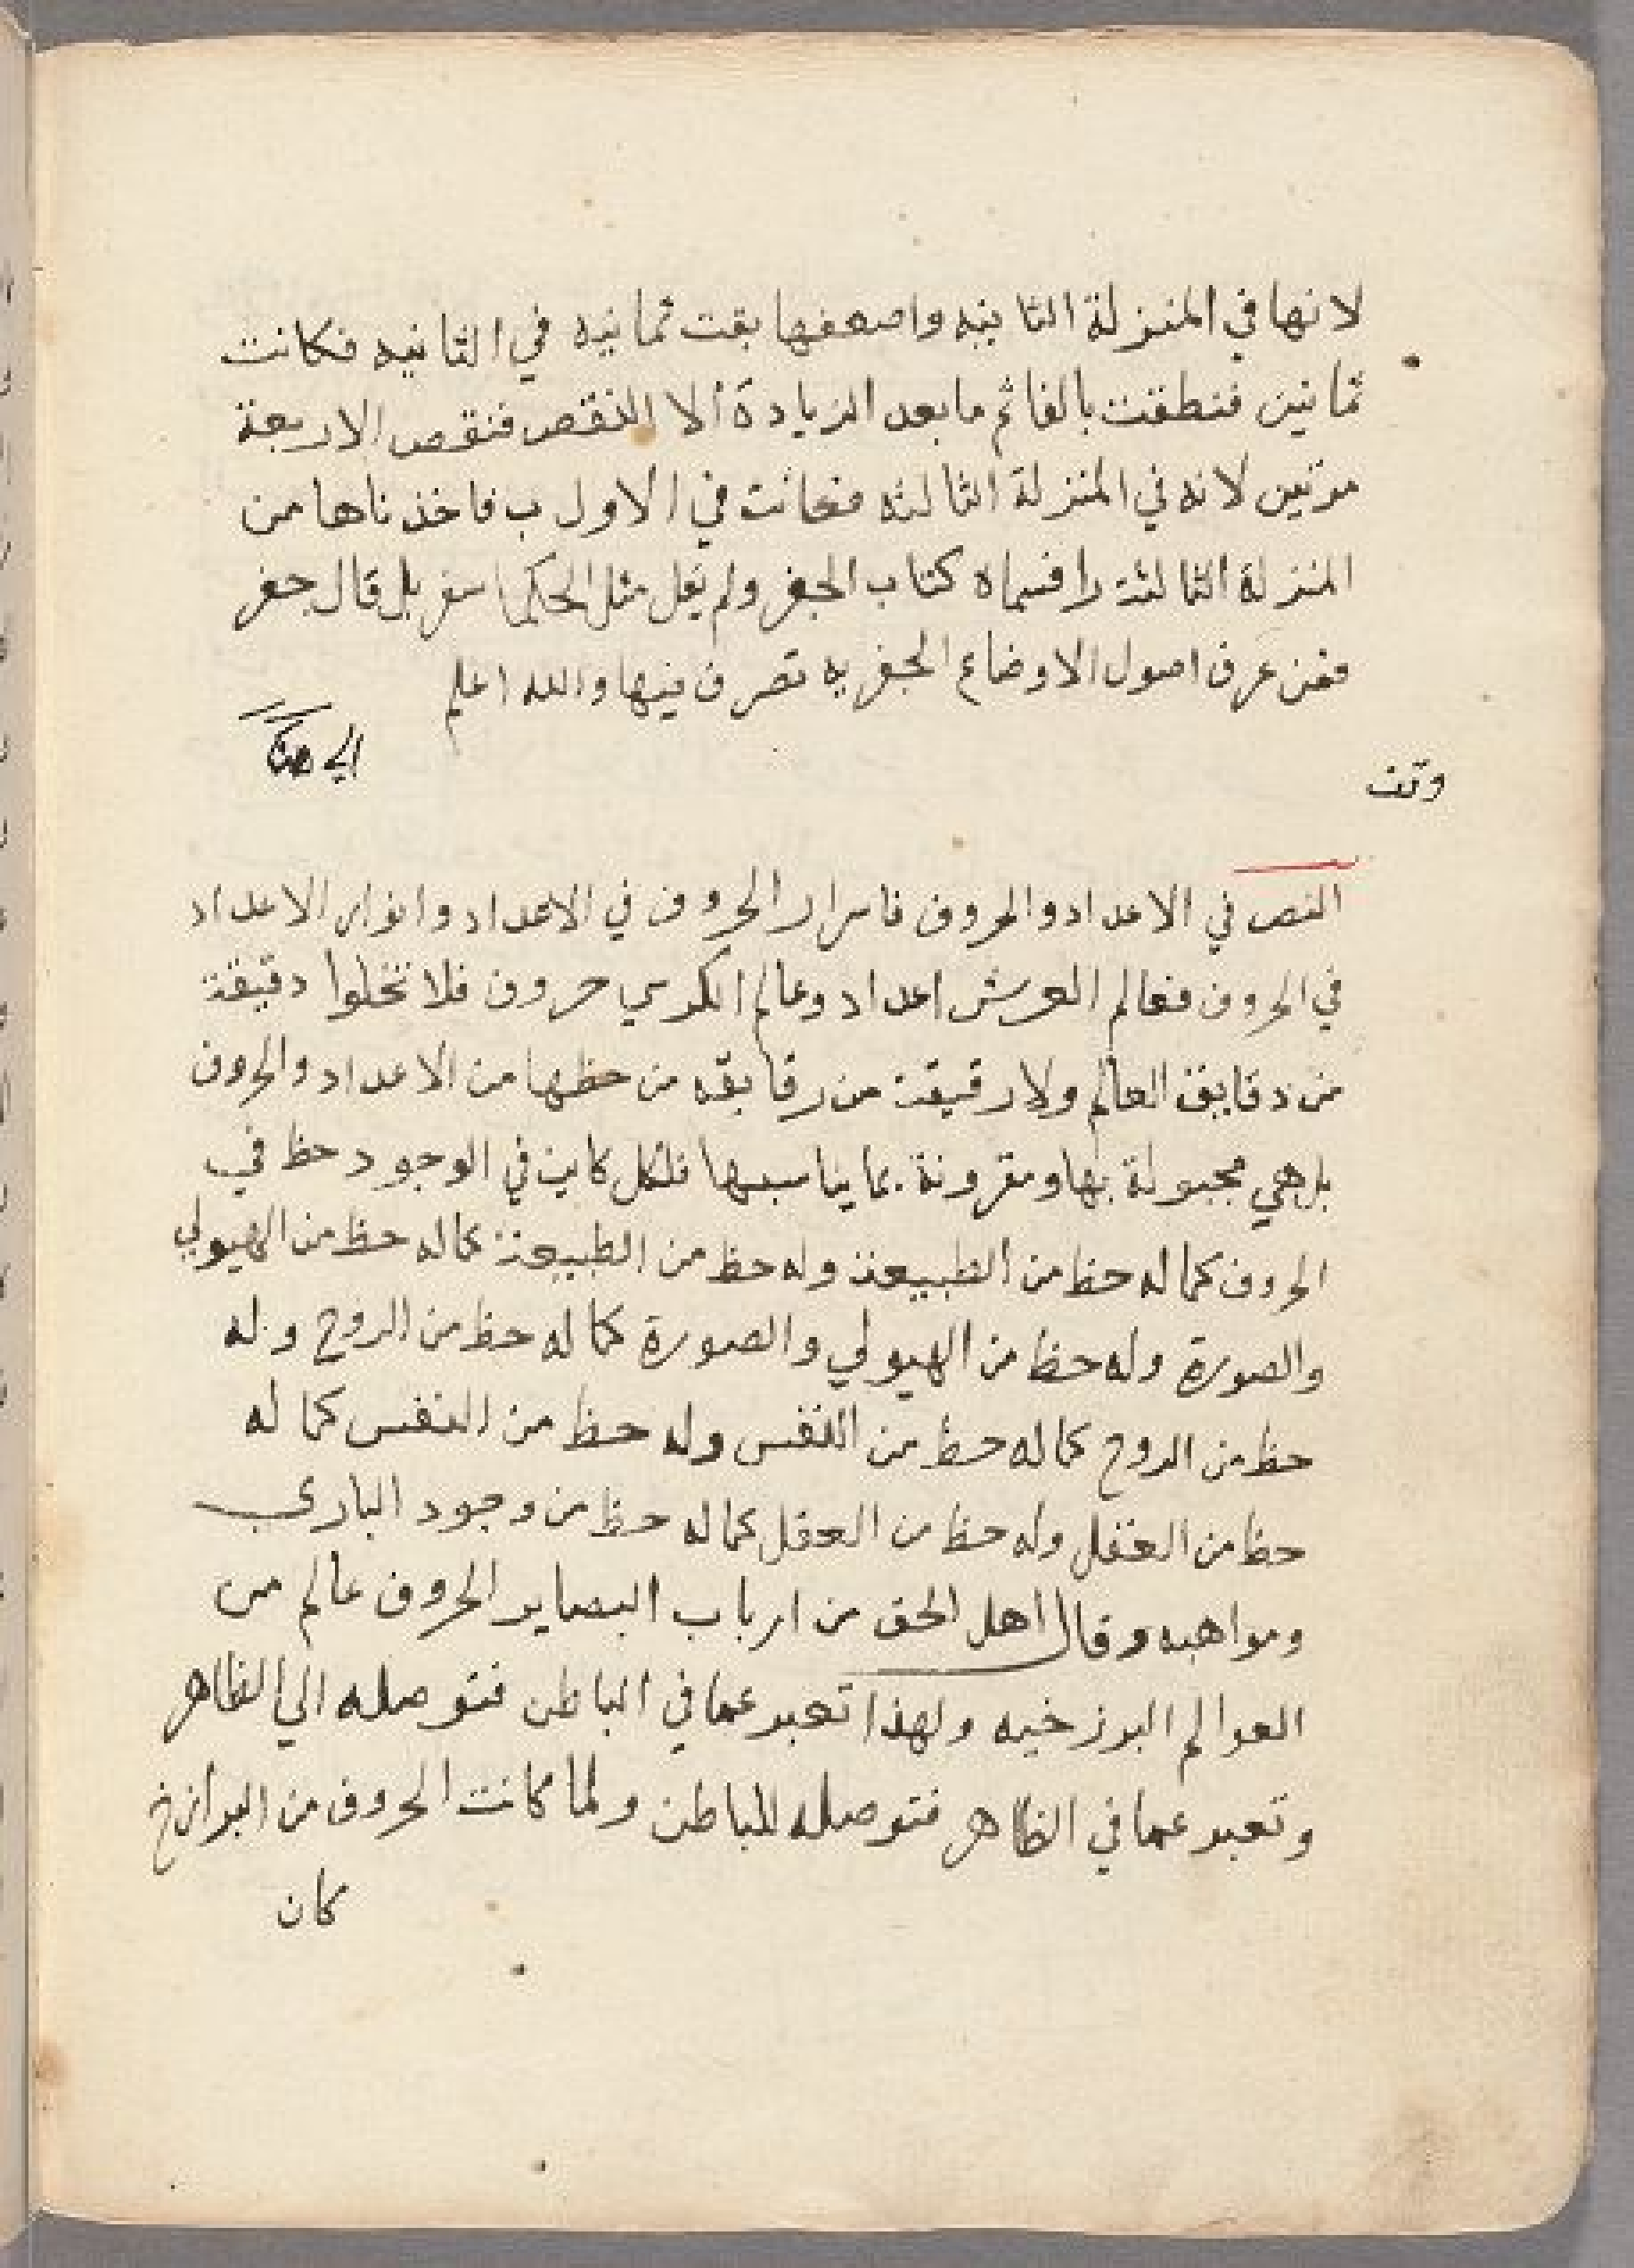 لانها في المنزلة الثانيه واضعفها بقت ثمانيه في الثانيه فكانت
ثمانين فنطقت بالفاثم ما بعد الزيادة الا النقص فنقص الاربعة
مرتين لانه في المنزلة الثالثه فعانت في الاول ب فاخذناها من
المنزلة الثالثة را فسماه كتاب الجفر ولم يقل مثل الحكما سفر بل قال جفر
فمن عرف اصول الاوضاع الجفريه تصرف فيها والله اعلم
الي هنا
وتت
النص في الاعداد والحروف فاسرار الحروف في الاعداد وانوار الاعداد
في الحروف فعالم العرش اعداد وعالم الكرسي حروف فلا تخلوا دقيقة
من دقايق العالم ولا رقيقة من رقايقه من حظها من الاعداد والحروف
بل هي مجبولة بها ومقرونة بما يناسبها فلكل كاين في الوجود حظ في
الحروف كما له حظ من الطبيعة وله حظ من الطبيعة كما له حظ من الهيولي
والصورة وله حظ من الهيولي والصورة كما له حظ من الروح وله
حظ من الروح كما له حظ من النفس وله حظ من النفس كما له
حظ من العقل وله حظ من العقل كما له حظ من وجود الباري
ومواهبه وقال اهل الحق من ارباب البصاير الحروف عالم من
العوالم البرزخيه ولهذا تعبر عما في الباطن فتوصله الي الظاهر
وتعبر عما في الظاهر فتوصله للباطن ولما كانت الحروف من البرازخ
كان